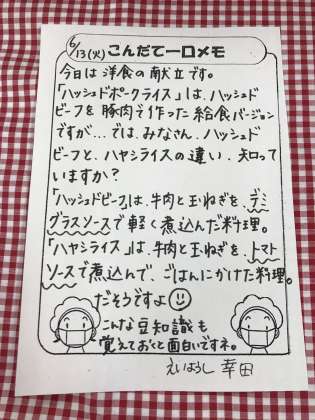 6/13(火) こんだて一口メモ
今日は洋食の献立です。
「ハッシュドポークライス」は、ハッシュド
ビーフを豚肉で作った給食バージョン
ですが…では、みなさん、ハッシュド
ビーフと、ハヤシライスの違い、知って
いますか？
「ハッシュドビーフ」は、牛肉と玉ねぎを、デミ
グラスソースで軽く煮込んだ料理。
「ハヤシライス」は、牛肉と玉ねぎを、トマト
ソースで煮込んで、ごはんにかけた料理。
だそうですよ
こんな豆知識も
覚えておくと面白いですネ。
えいようし 幸田